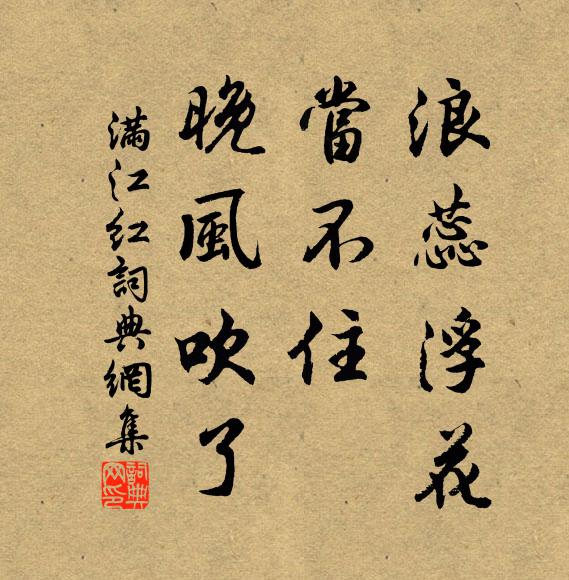 浪蕊浮花
當不住
晚風吹了
滿江紅詞典網集
詞典网印